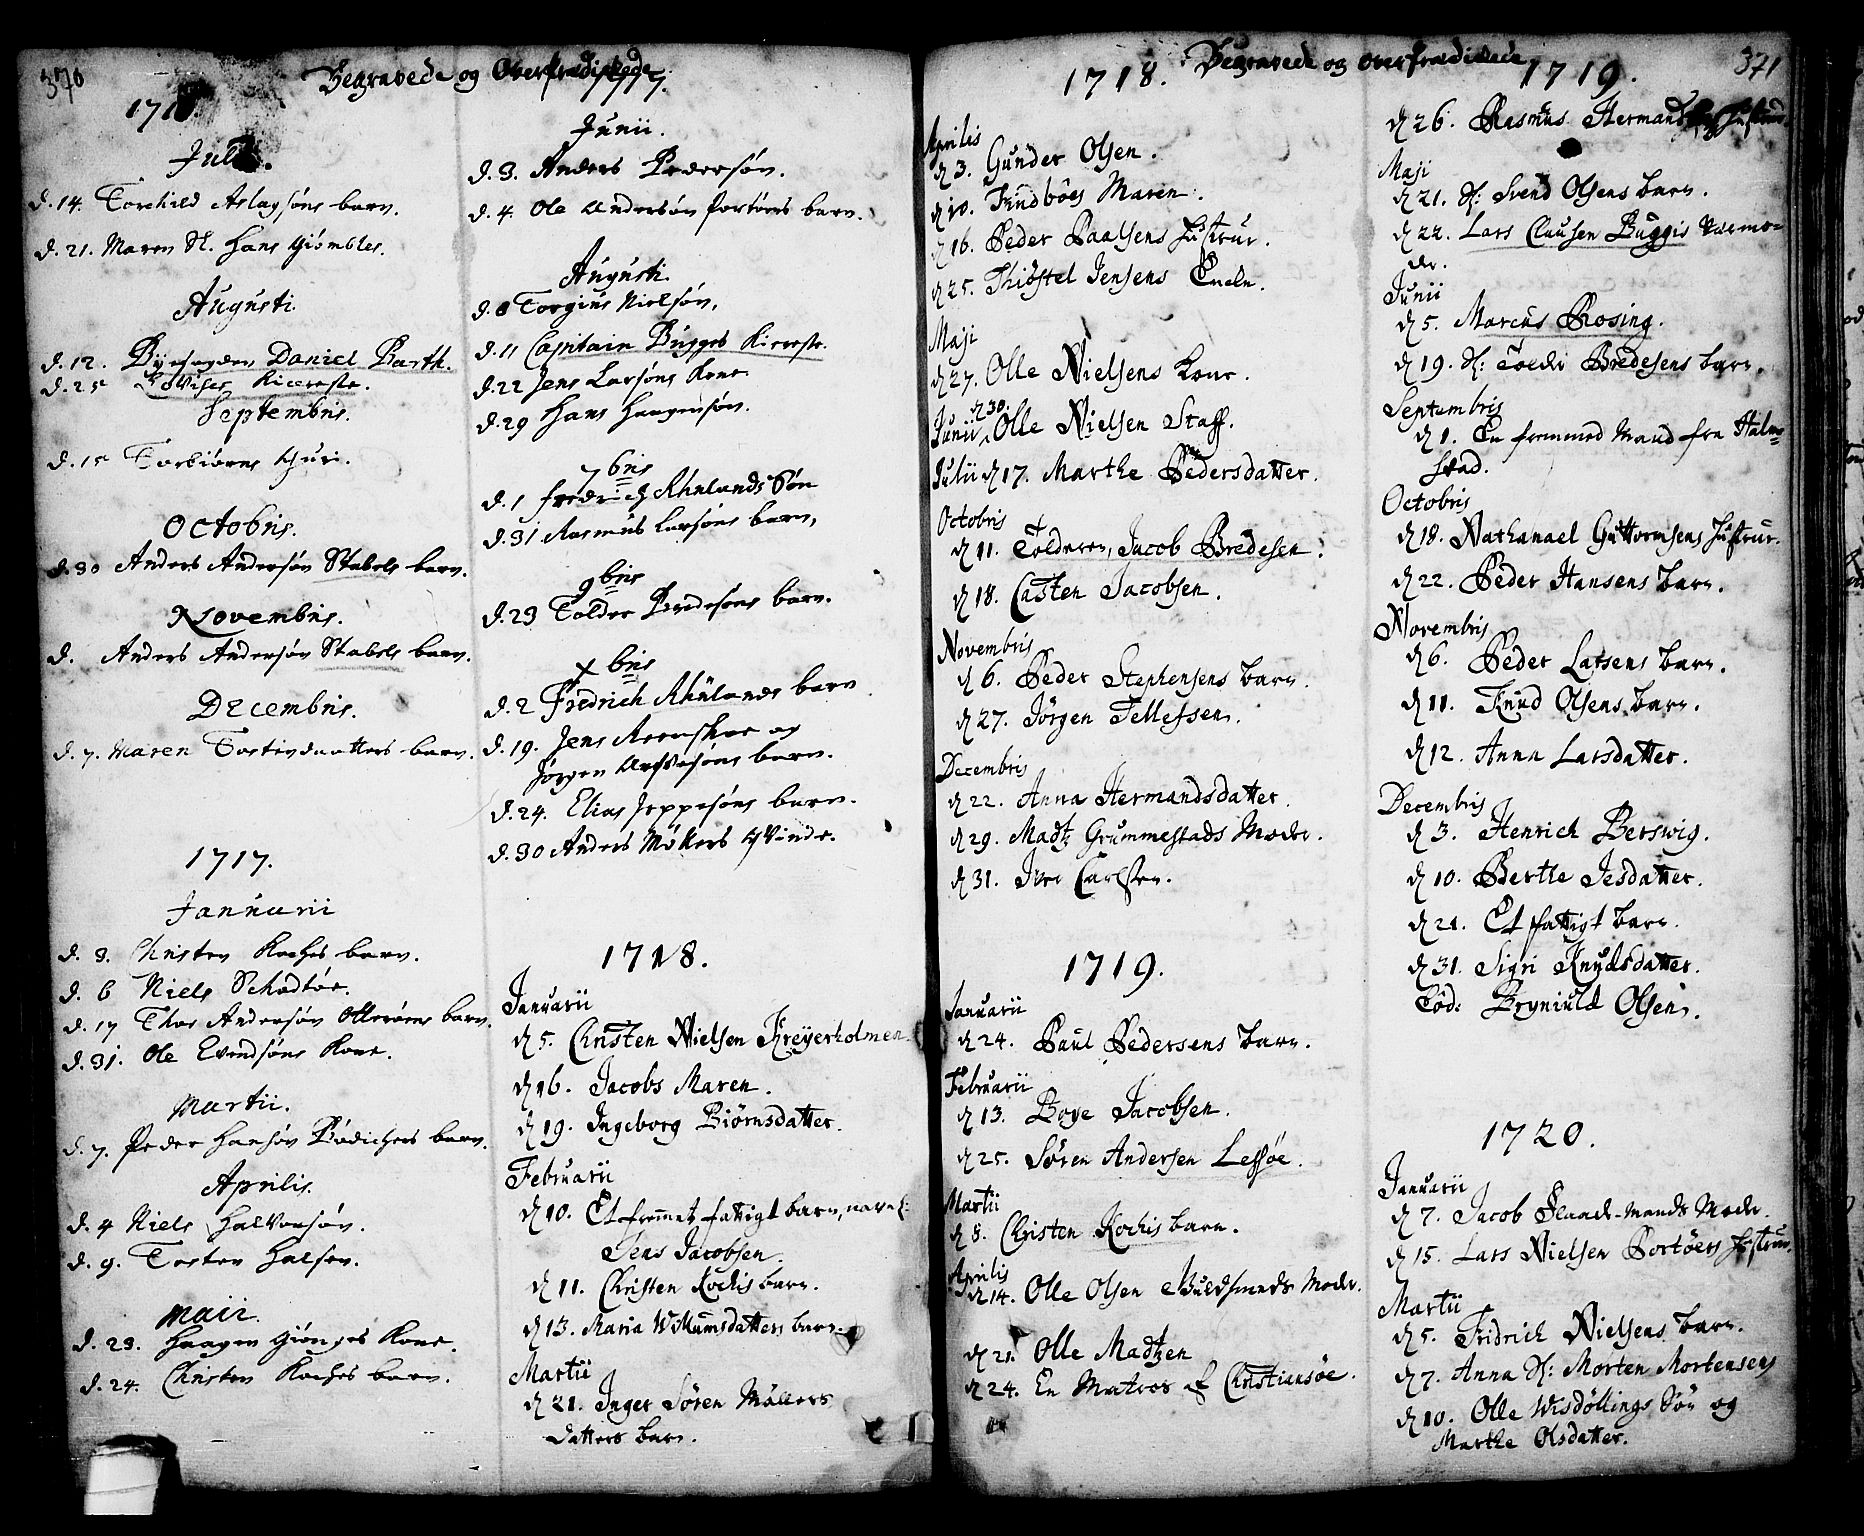 370
Begravede og Overfrædiskede
1716.
Julii.
d. 14. Torchild Aslagsøns barn.
d. 21. Maren Sl. Hans Giømbles.
Augusti.
d. 12. Byefogden Daniel Barth.
d. 25 Kiereste.
Septembris.
d. 15 Torbiørns Guri.
Octobris.
d. 30 Anders Andersøn Stabels barn.
Novembris.
d. Anders Andersøn Stabels barn.
Decembris.
d. 7. Maren barn.
1717.
Januarii
d. 3. Christen Koches barn.
d. 6 Niels
d. 17 Thor Andersøn barn.
d. 31. Ole Evendsøns Kone.
Martii.
d. 7. Peder Hansøn Bødichers barn.
Aprilis.
d. 4 Niels Halvorsøn.
d. 9. Torsten Halsen.
Maii.
d. 23. Haagen Kone.
d. 24. Christen Koches barn.
1717.
Junii.
d. 3. Anders Pedersøn.
d. 4. Ole Andersøn Portørs barn.
Augusti.
d. 8 Torgius Nielsøn.
d. 11 Capitain Bugges Kiereste.
d. 22 Jens Larsøns Kone
d. 29 Hans Haagensøn.
7bris
d. 1 Fredrich Rhulands Søn
d. 31 Rasmus Larsøns barn,
9bris
d. 23 Tolder Bredesøns barn.
Xbris
d. 2 Fredrich Rhulands barn
d. 19. Jens og
Jørgen barn.
d. 24. Elias Jeppesøns barn.
d. 30 Anders Møllers Qvinde.
1718.
Januarii
d 5. Christen Nielsen Kreyerholmen.
d 16. Jacobs Maren.
d 19. Ingeborg Biørnsdatter.
Februarii
d 10. Et fremmet fattigt barn, navnl:
Jens Jacobsen.
d 11. Christen Kochis barn.
d 13. Maria Willumsdatters barn.
Martii
d 21. Inger Søren Møllers
datters barn.
1718.
Begravede og overfrædiskede
1719.
371
Aprilis
d 3. Gunder Olsen.
d 10. Maren.
d 16. Peder Paalsens Hustrue.
d 25. Jensens
Maji
d 27. Olle Nielsens Kone.
Junii d 30. Olle Nielsen Staff.
Julii d 17. Marthe Pedersdatter.
Octobris
d 11. Tolderen, Jacob Bredesen.
d 18. Casten Jacobsen.
Novembris
d 6. Peder Stephensens barn.
d 27. Jørgen Tellefsen.
Decembris
d 22. Anna Hermandsdatter.
d 29. Madtz Grummestads Moder.
d 31. Iver Carlsen.
1719.
Januarii
d 24. Paul Pedersens barn.
Februarii
d 13. Boye Jacobsen.
d 25. Søren Andersen Lessøe.
Martii
d 8. Christen Kochis barn.
Aprilis
d 14. Olle Olsen Guldsmeds Moder.
d 21. Olle Madtzen
d 24. En Matros af Christiansøe.
d 26. Rasmus Hermandsens Hustrue.
Maji
d 21. Sl: Svend Olsens barn.
d 22. Lars Clausen Buggis Værmo-
der.
Junii
d 5. Marcus Rosing.
d 19. Sl: Tolder Bredesens barn.
Septembris
d 1. En fremmed Mand fra Halm-
stad.
Octobris
d 18. Nathanael Guttormsens Hustrue.
d 22. Peder Hansens barn.
Novembris
d 6. Peder Larsens barn.
d 11. Knud Olsens barn.
d 12. Anna Larsdatter.
Decembris
d 3. Henrich Berswig.
d 10. Berthe Jesdatter.
d 21. Et fattigt barn.
d 31. Sigri Knudsdatter.
Eod: Bryniuld Olsen.
1720.
Januarii
d 7. Jacob Moder.
d 15. Lars Nielsen Portøers Hustrue.
Martii
d 5. Fridrich Nielsens barn.
d 7. Anna Sl: Morten Mortensens
d 10. Olle Wisdøllings Søn og
Marthe Olsdatter.